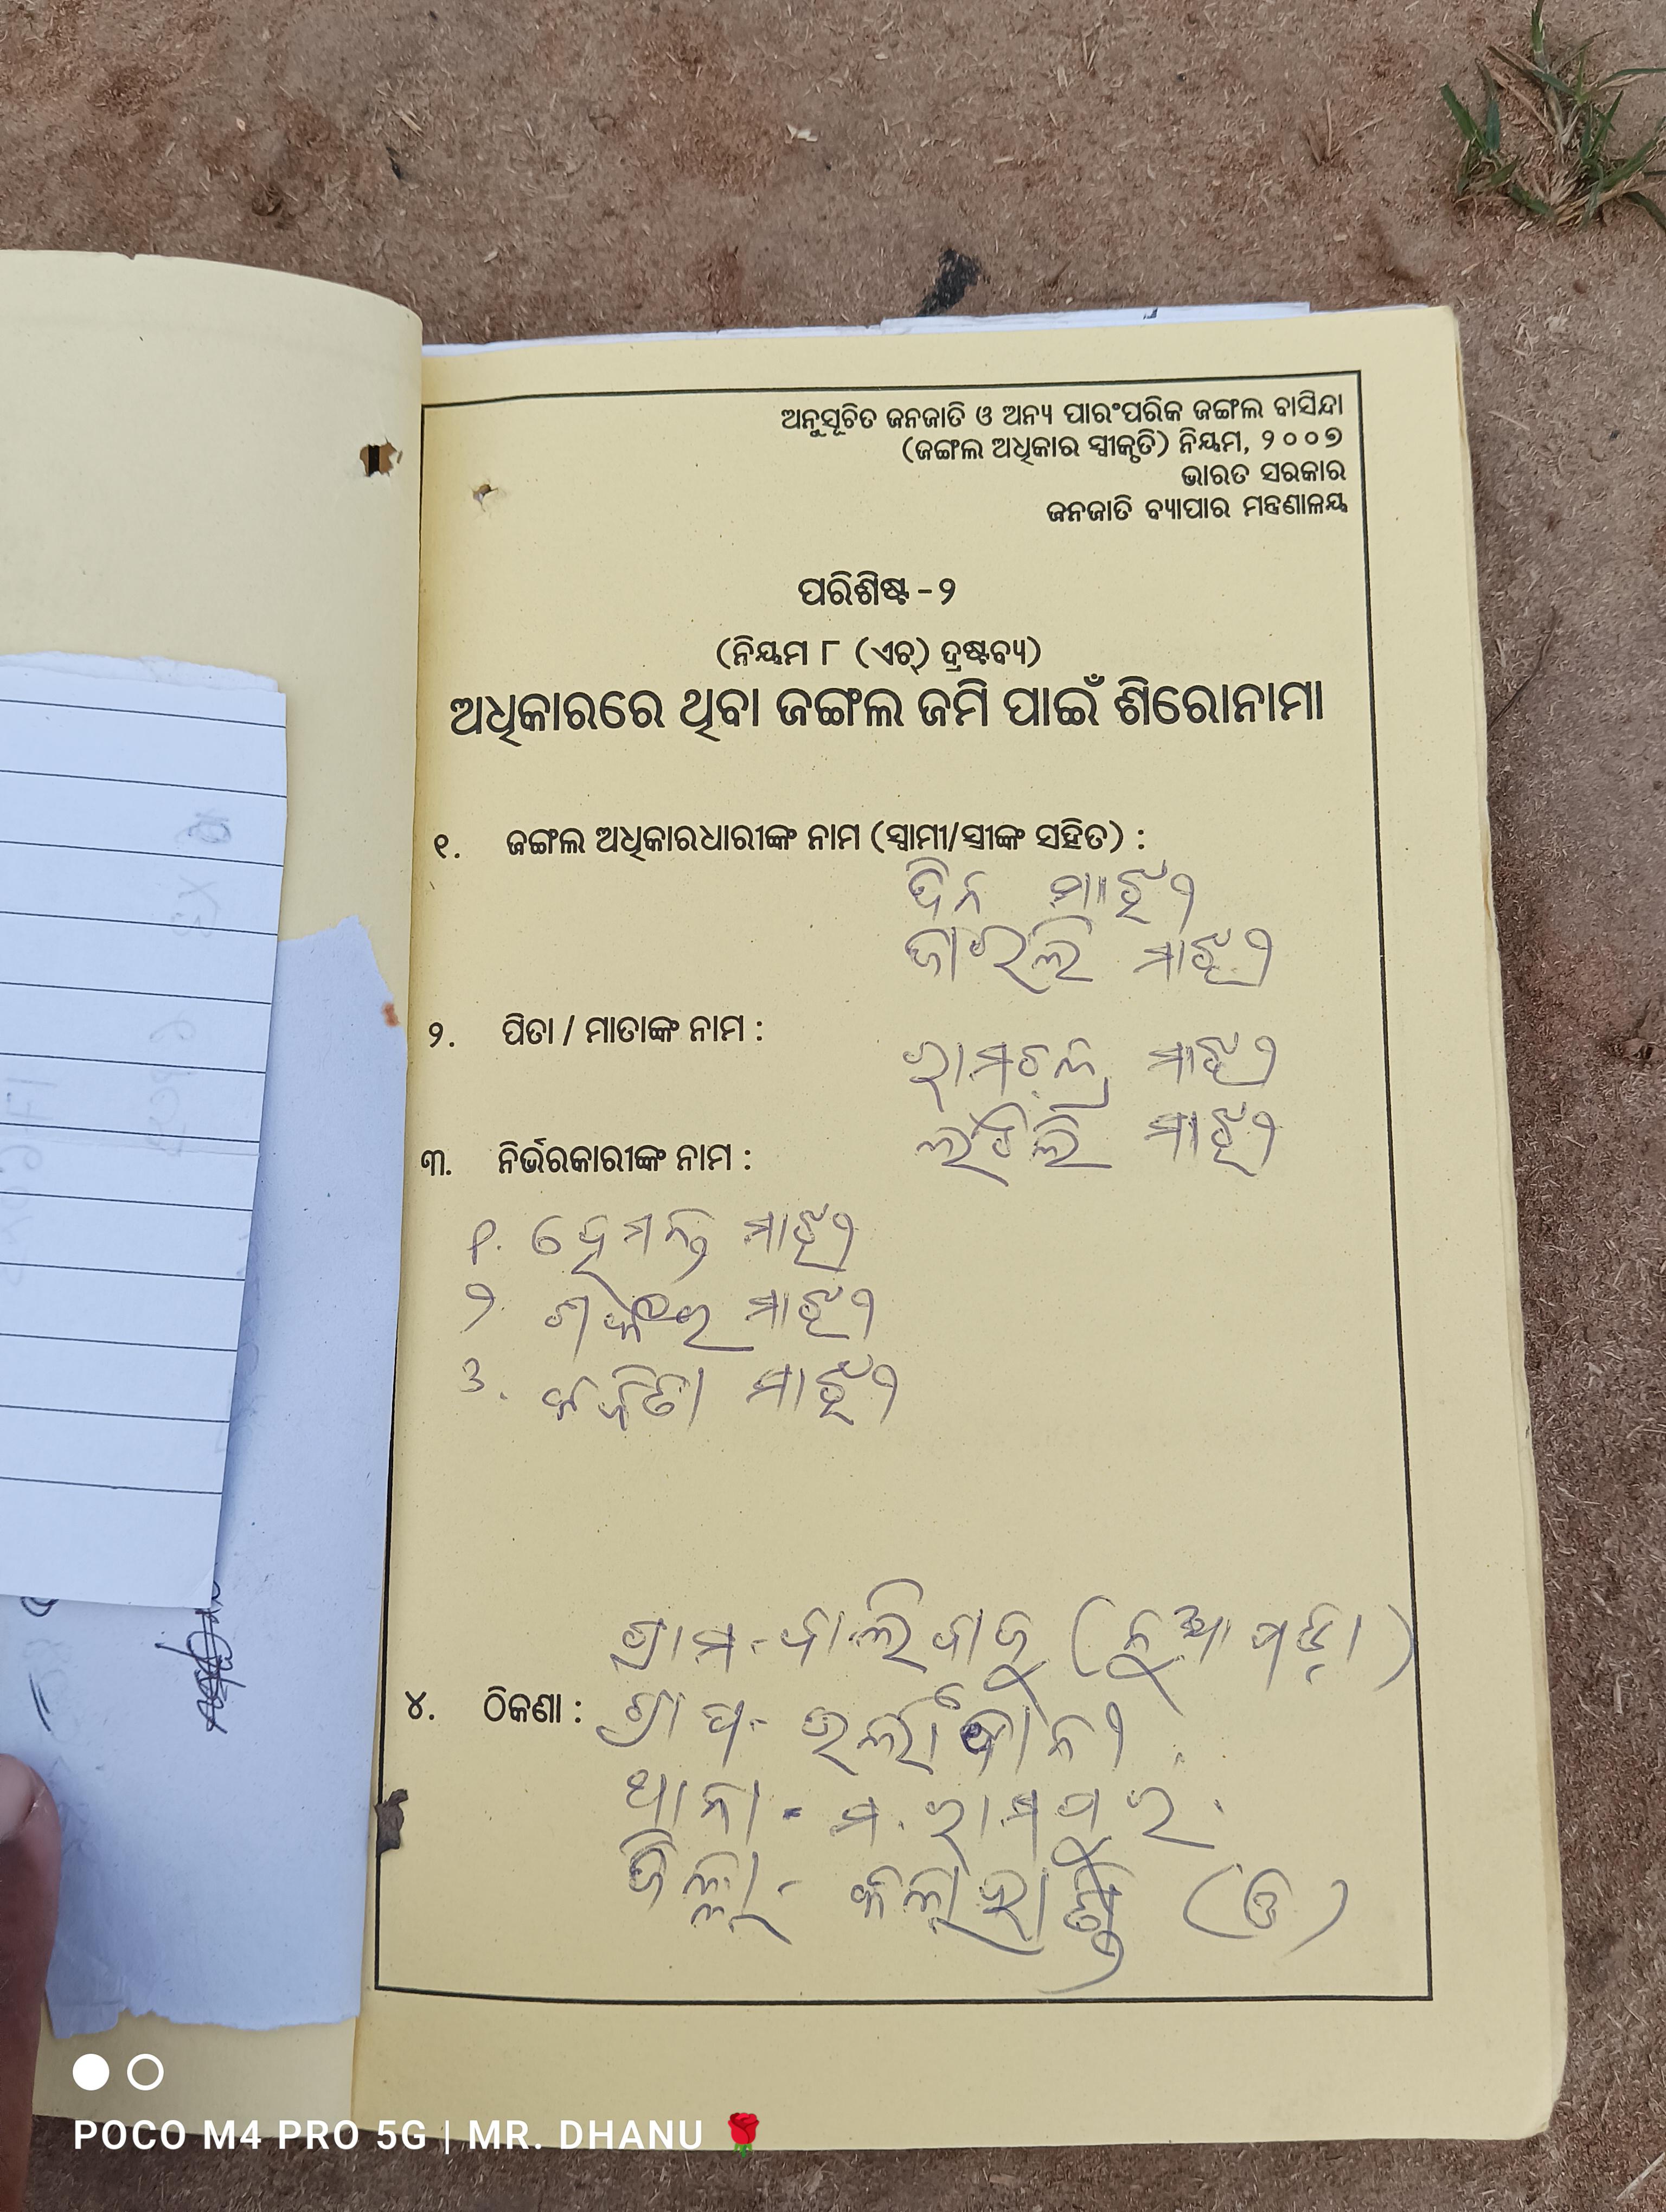 ଅନୁସୂଚିତ ଜନଜାତି ଓ ଅନ୍ୟ ପାରଂପରିକ ଜଙ୍ଗଲ ବାସିନ୍ଦା
(ଜଙ୍ଗଲ ଅଧିକାର ସ୍ୱୀକୃତି) ନିୟମ, ୨୦୦୭
ଭାରତ ସରକାର
ଜନଜାତି ବ୍ୟାପାର ମନ୍ତ୍ରଣାଳୟ
ପରିଶିଷ୍ଟ-୨
(ନିୟମ ୮ (ଏଚ୍) ଦ୍ରଷ୍ଟବ୍ୟ)
ଅଧିକାରରେ ଥିବା ଜଙ୍ଗଲ ଜମି ପାଇଁ ଶିରୋନାମା
୧. ଜଙ୍ଗଲ ଅଧିକାରଧାରୀଙ୍କ ନାମ (ସ୍ୱାମୀ/ସ୍ତ୍ରୀଙ୍କ ସହିତ) :
ଦିନ ମାଝୀ
ମାଝୀ
୨. ପିତା / ମାତାଙ୍କ ନାମ :
ରାମଚନ୍ଦ୍ର ମାଝୀ
ମାଝୀ
୩. ନିର୍ଭରକାରୀଙ୍କ ନାମ :
୧. ହେମନ୍ତ ମାଝୀ
୨. ମାଝୀ
3. ମାଝୀ
ଗ୍ରାମ- (ନୂଆପଡ଼ା)
୪. ଠିକଣା : ଗ୍ରା ପ-
ଥାନା - ମ. ରାମପୁର
ଜିଲ୍ଲା - କଳାହାଣ୍ଡି (ଓ)
POCO M4 PRO 5G | MR. DHANU 🌹